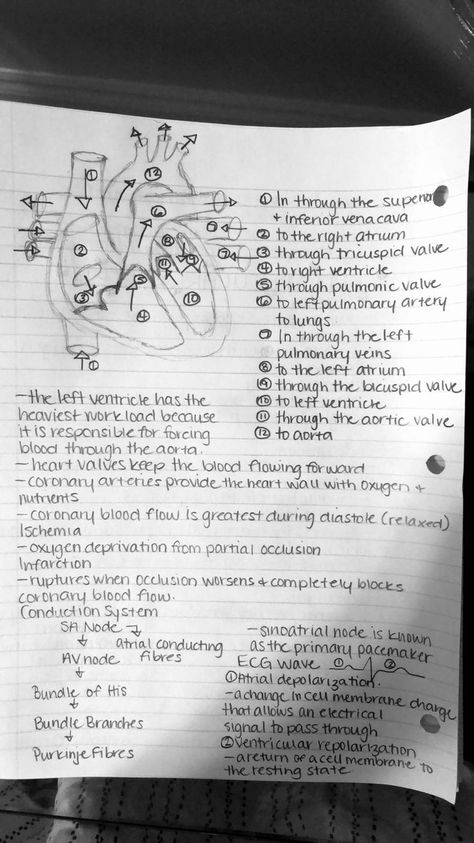 ① In through the superior
+ inferior vena cava
② to the right atrium
③ through tricuspid valve
④ to right ventricle
⑤ through pulmonic valve
⑥ to left pulmonary artery
to lungs
⑦ In through the left
pulmonary veins
⑧ to the left atrium
⑨ through the bicuspid valve
⑩ to left ventricle
⑪ through the aortic valve
⑫ to aorta
①
12
6
7
2
8
7
11
9
5
3
4
10
①
- the left ventricle has the
heaviest workload because
it is responsible for forcing
blood through the aorta.
- heart valves keep the blood flowing forward
- coronary arteries provide the heart wall with oxygen +
nutrients
- coronary blood flow is greatest during diastole (relaxed)
Ischemia
- oxygen deprivation from partial occlusion
Infarction
- ruptures when occlusion worsens & completely blocks
coronary blood flow.
Conduction System
SA Node
atrial conducting
fibres
AV node
Bundle of His
Bundle Branches
Purkinje Fibres
- sinoatrial node is known
as the primary pacemaker
ECG WAVE ① ②
① Atrial depolarization.
- a change in cell membrane charge
that allows an electrical
signal to pass through
② Ventricular repolarization
- a return of a cell membrane to
the resting state